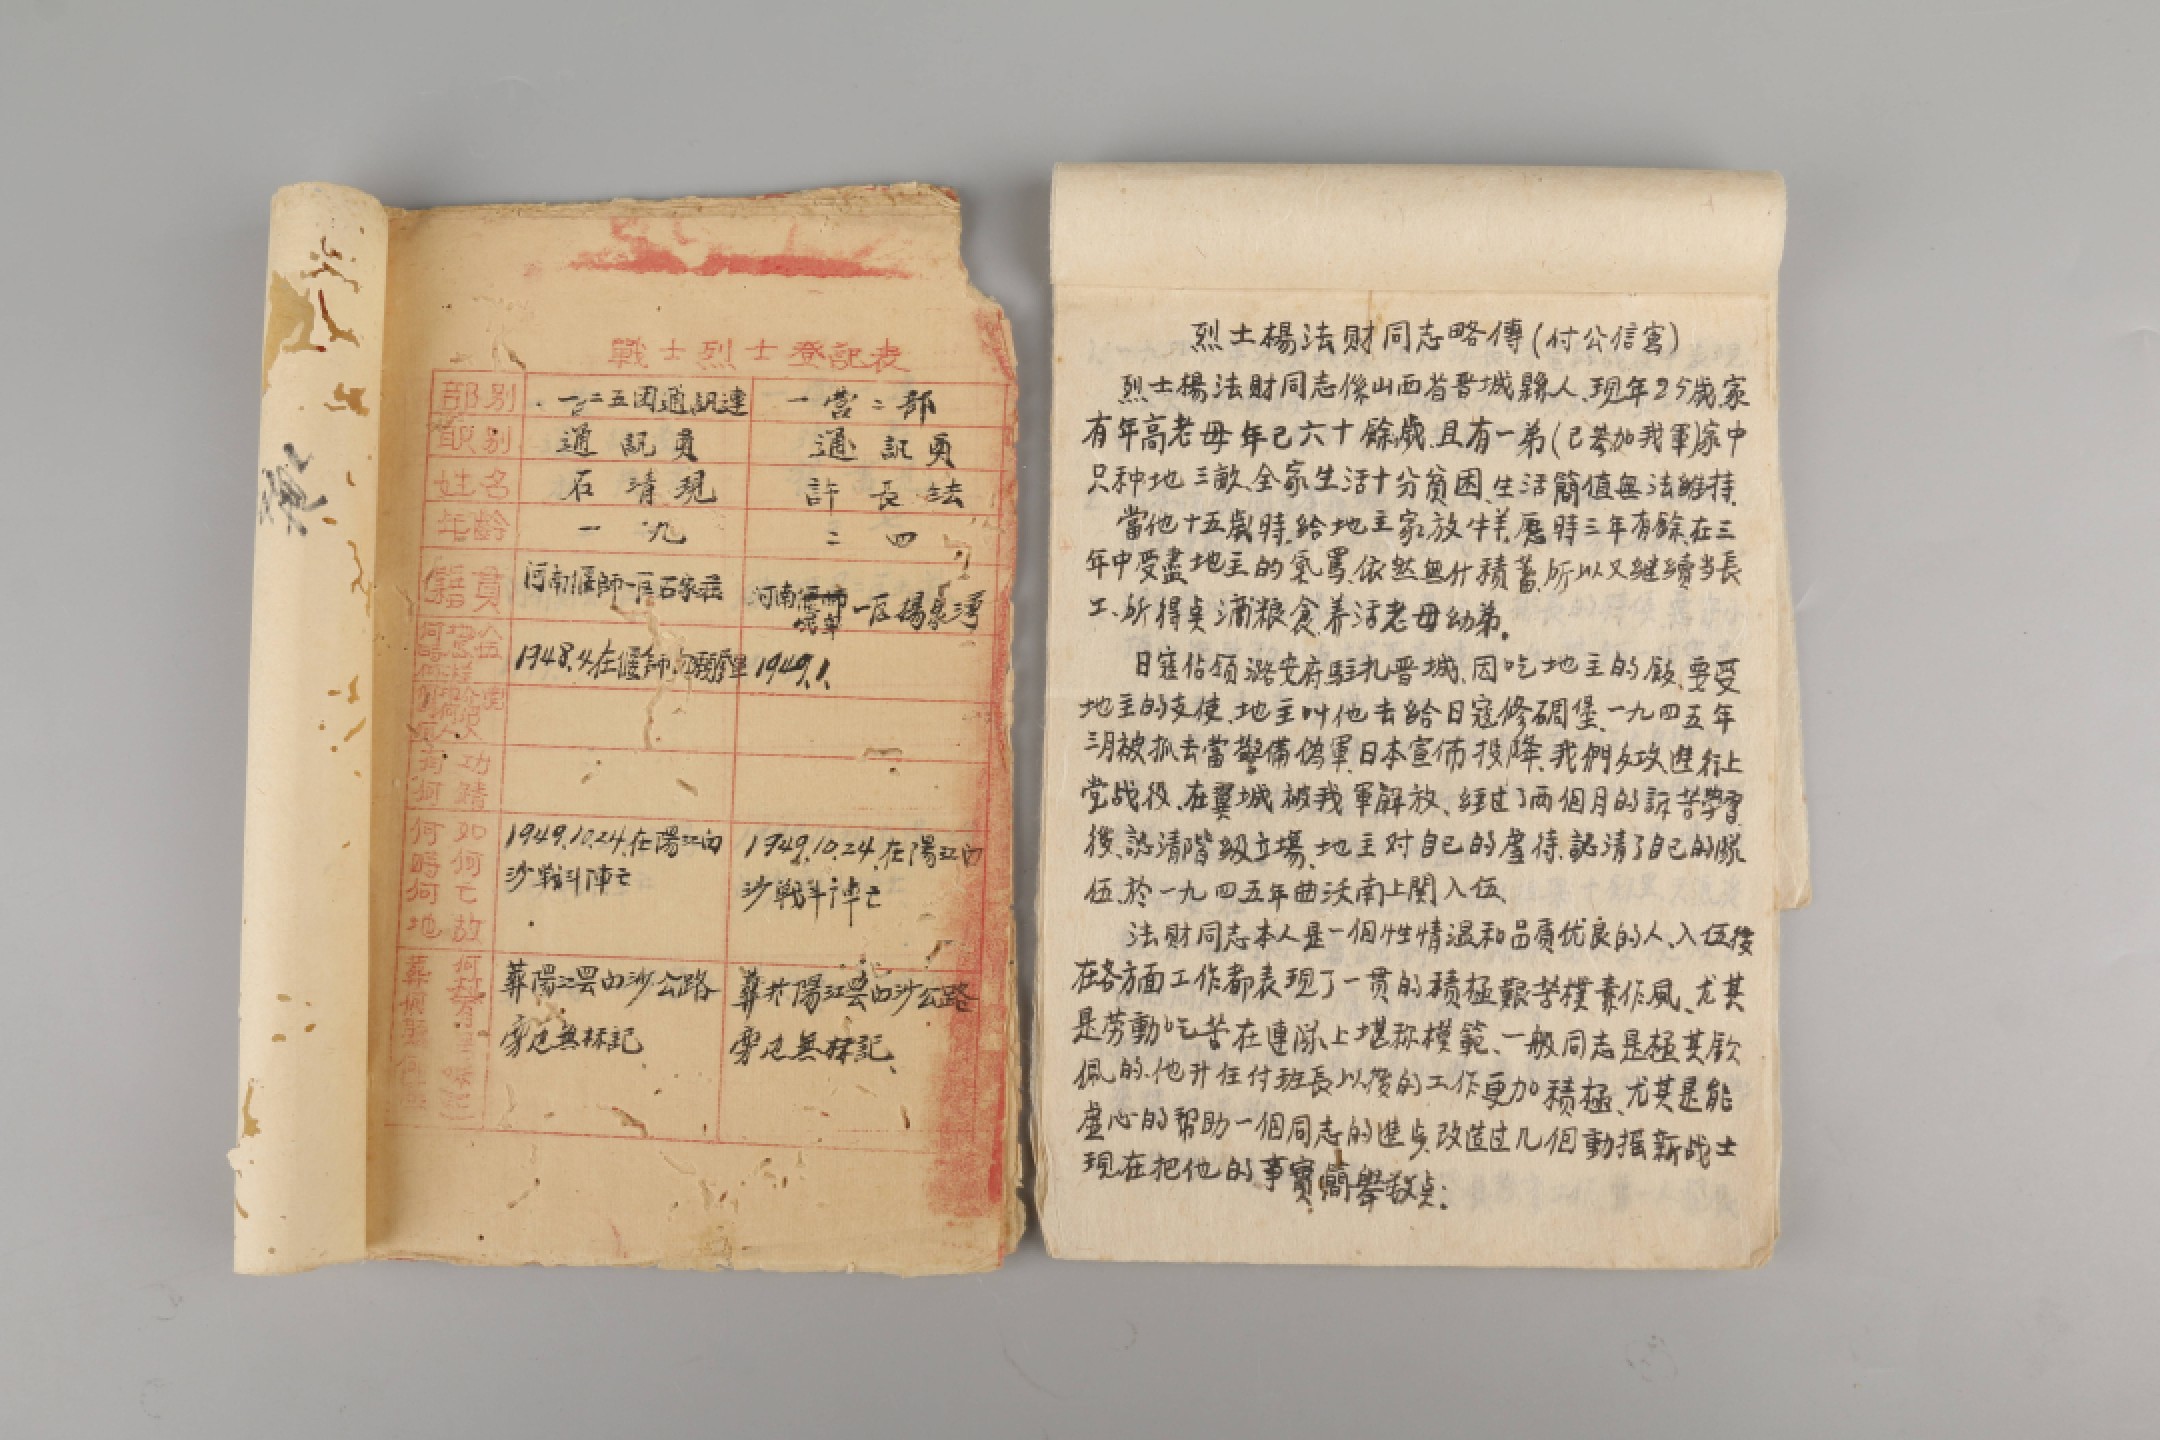 戰士烈士登記表
部别 一二五团通訊連 一营二部
职别 通訊員 通訊員
姓名 石清現 許長法
年齡 一九 二四
籍貫 河南偃師一区石家莊 河南 一区楊家灣
1948.4在偃師 1949.1.
有何功績
何時何地如何亡故 1949.10.24.在陽江白沙戰斗陣亡 1949.10.24.在陽江白沙戰斗陣亡
葬陽江县白沙公路旁边無标記 葬扵陽江县白沙公路旁边無标記、
烈士楊法財同志略傳(付公信害)
烈士楊法財同志係山西省晋城縣人、現年25歲、家
有年高老母年已六十餘歲、且有一弟(已参加我軍)家中
只种地三畝、全家生活十分貧困、生活簡值無法維持、
當他十五歲時、給地主家放牛羊、歷時三年有餘、在三
年中受盡地主的氣罵、依然無什積蓄、所以又継續当長
工、所得点滴粮食、养活老母幼弟。
日寇佔領潞安府駐扎晋城、因吃地主的飯、要受
地主的支使、地主叫他去給日寇修碉堡、一九四五年
三月被抓去當警備偽軍、日本宣佈投降、我們反攻進行上
党战役、在翼城被我軍解放、経过了两個月的訴苦學習
後、認清階級立場、地主对自己的虐待、認清了自己的隊
伍、於一九四五年曲沃南上関入伍、
法財同志本人是一個性情温和品质优良的人、入伍後
在各方面工作都表現了一贯的積極艱苦樸素作風、尤其
是劳動吃苦在連隊上堪称模範、一般同志是極其欽
佩的、他升任付班長以後的工作更加積極、尤其是能
虚心的帮助一個同志的進步、改造过几個動摇新战士
現在把他的事實簡舉数点: